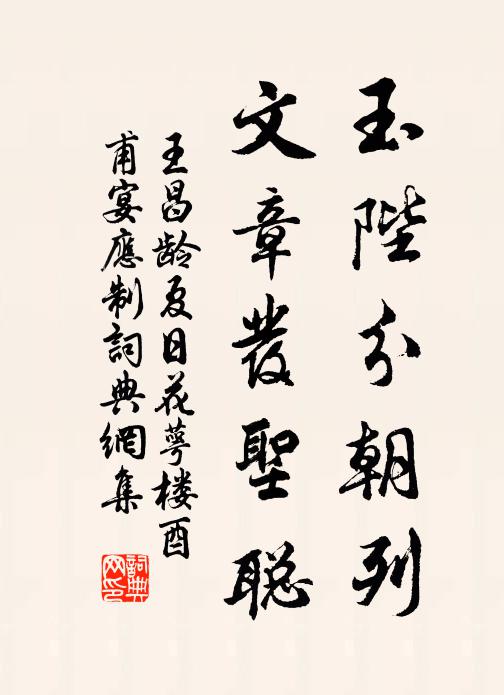 玉陛分朝列
文章發聖聪
王昌龄夏日花萼楼酉
甫宴應制詞典網集
詞典网印